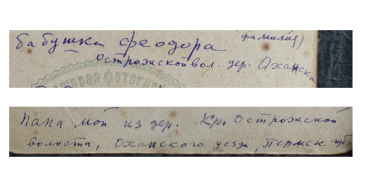 фамилия)
бабушка феодора
Острожской вол. дер. Оханска
Папа мой из дер. Кр. Острожской
волости, Оханского уезда, Пермск. губ